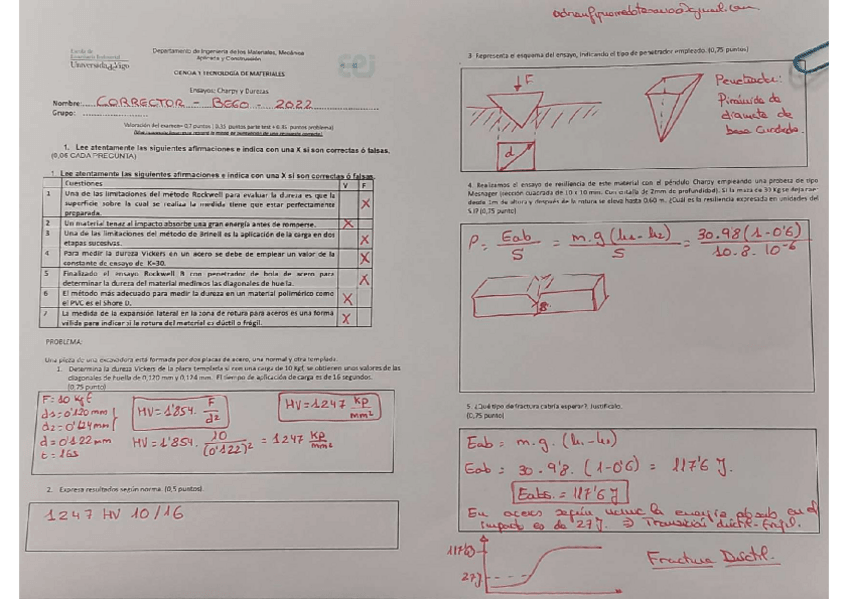 Escuela de
Enxeñaría Industrial
Universidade de Vigo
Departamento de Ingeniería de los Materiales, Mecánica
Aplicada y Construcción
CIENCIA Y TECNOLOGÍA DE MATERIALES
eei
Ensayos: Charpy y Durezas
Nombre: CORRECTOR - BEGO - 2022
Grupo:
1. Lee atentamente las siguientes afirmaciones e indica con una X si son correctas ó falsas.
(0,05 CADA PREGUNTA)
1. Lee atentamente las siguientes afirmaciones e indica con una X si son correctas ó falsas.
Cuestiones V F
1 Una de las limitaciones del método Rockwell para evaluar la dureza es que la
superficie sobre la cual se realiza la medida tiene que estar perfectamente
preparada. X
2 Un material tenaz al impacto absorbe una gran energía antes de romperse. X
3 Una de las limitaciones del método de Brinell es la aplicación de la carga en dos
etapas sucesivas. X
4 Para medir la dureza Vickers en un acero se debe de emplear un valor de la
constante de ensayo de K=30. X
5 Finalizado el ensayo Rockwell B con penetrador de bola de acero para
determinar la dureza del material medimos las diagonales de huella. X
6 El método más adecuado para medir la dureza en un material polimérico como
el PVC es el Shore D. X
7 La medida de la expansión lateral en la zona de rotura para aceros es una forma
válida para indicar si la rotura del material es dúctil o frágil. X
PROBLEMA:
Una pieza de una excavadora está formada por dos placas de acero, una normal y otra templada.
1. Determina la dureza Vickers de la placa templada si con una carga de 10 Kgf, se obtienen unos valores de las
diagonales de huella de 0,120 mm y 0,124 mm. El tiempo de aplicación de carga es de 16 segundos.
(0,75 punto)
F= 10 Kgf
d1= 0'120 mm
d2= 0'124 mm
d= 0'122 mm
t= 16s
HV= 1'854. F/d2
HV= 1247 kp/mm2
HV= 1'854. 10/(0'122)2 = 1247 kp/mm2
2. Expresa resultados según norma. (0,5 puntos)
1247 HV 10/16
3. Representa el esquema del ensayo, indicando el tipo de penetrador empleado. (0,75 puntos)
F
d
Penetrador:
Pirámide de
diamante de
base Cuadrada.
4. Realizamos el ensayo de resiliencia de este material con el péndulo Charpy empleando una probeta de tipo
Mesnager (sección cuadrada de 10 x 10 mm. Con entalla de 2mm de profundidad). Si la maza de 30 Kg se deja caer
desde 1m de altura y después de la rotura se eleva hasta 0,60 m. ¿Cuál es la resiliencia expresada en unidades del
S.I? (0,75 punto)
ρ = Eab/S = m.g(h1-h2)/S = 30.98(1-0'6)/10.8.10-6
8
5. ¿Qué tipo de fractura cabría esperar?. Justifícalo.
(0,75 punto)
Eab = m.g. (h1-h2)
Eab = 30.9'8. (1-0'6) = 117'6 J.
Eabs. = 117'6 J
En aceros según norma la energía absorb en el
impacto es de 27J. ⇒ Transición dúctil-frágil.
117'6J
27J
Fractura Dúctil.